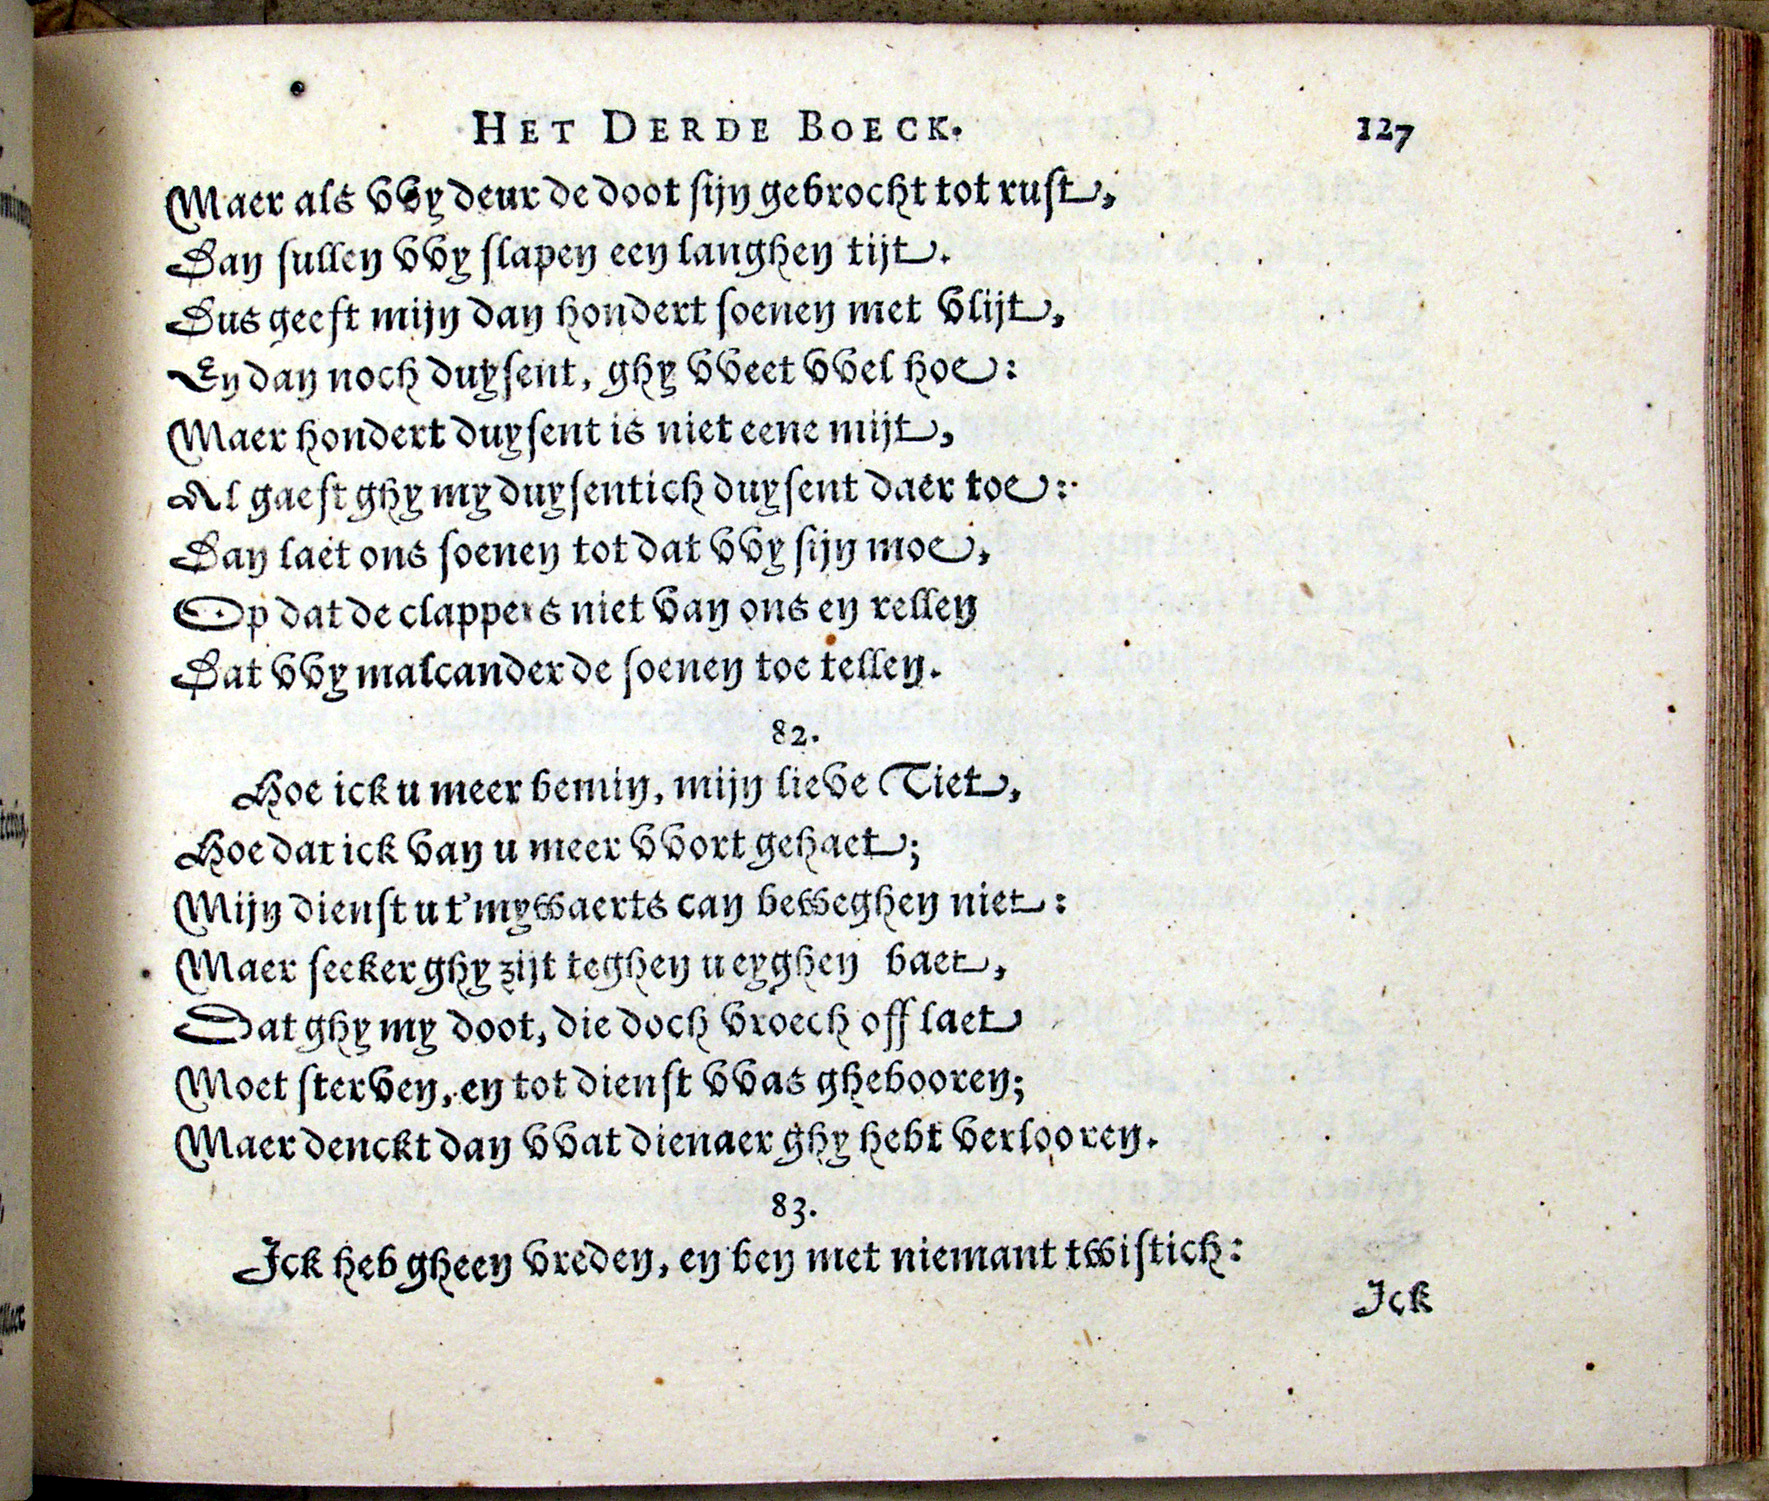 HET DERDE BOECK. 127
Maer als vvy deur de doot sijn gebrocht tot rust,
Dan sullen vvy slapen een langhen tijt.
Dus geeft mijn dan hondert soenen met vlijt,
En dan noch duysent, ghy vveet vvel hoe:
Maer hondert duysent is niet eene mijt,
Al gaeft ghy my duysentich duysent daer toe:
Dan laet ons soenen tot dat vvy sijn moe,
Op dat de clappers niet van ons en rellen
Dat vvy malcander de soenen toe tellen.
82.
Hoe ick u meer bemin, mijn lieve Tiet,
Hoe dat ick van u meer vvort gehaet;
Mijn dienst u t'mywaerts can beweghen niet:
Maer seeker ghy zijt teghen u eyghen baet,
Dat ghy my doot, die doch vroech off laet
Moet sterven, en tot dienst vvas ghebooren;
Maer denckt dan vvat dienaer ghy hebt verlooren.
83.
Ick heb gheen vreden, en ben met niemant twistich:
Ick